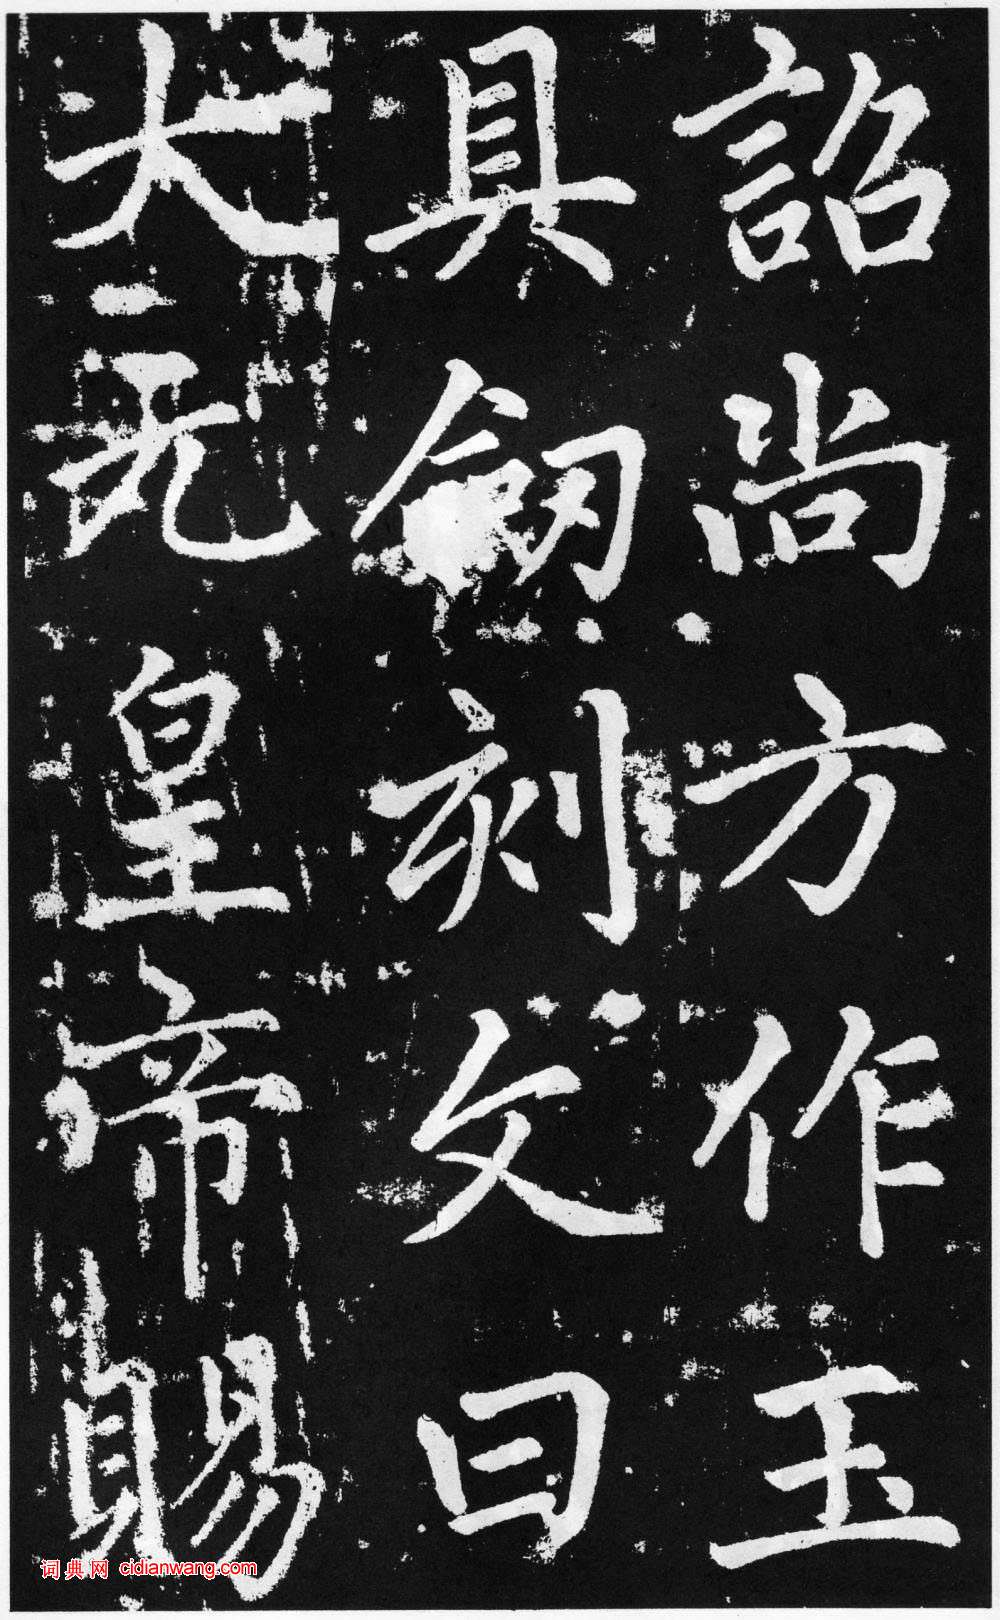 詔尚方作玉
具劒刻文曰
大元皇帝賜
词典网 cidianwang.com